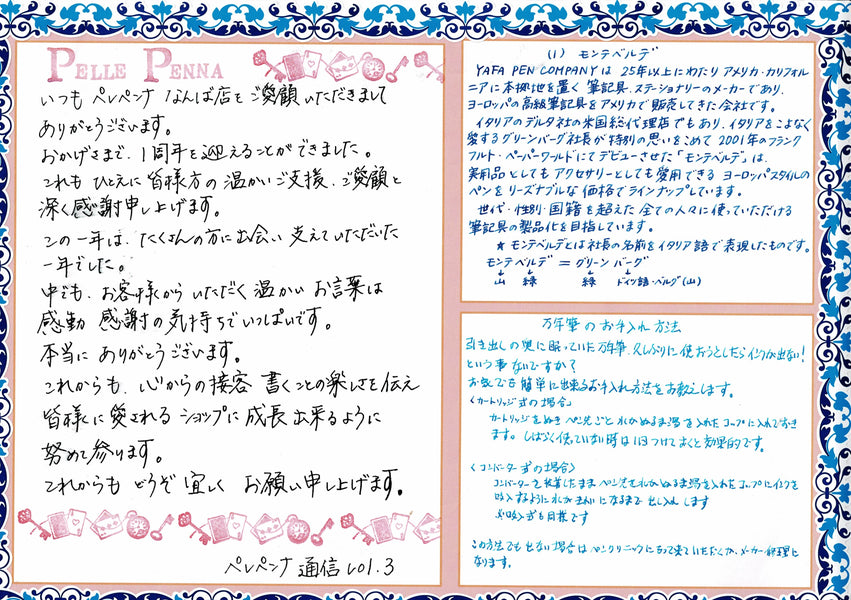 PELLE PENNA
いつも ペレペンナ なんば店を ご愛顧いただきまして
ありがとうございます。
おかげさまで、1周年を迎えることができました。
これも ひとえに 皆様方の 温かいご支援、ご愛顧と
深く感謝申し上げます。
この一年は、たくさんの方に出会い 支えていただいた
一年でした。
中でも、お客様から いただく 温かい お言葉は
感動 感謝の気持ちで いっぱいです。
本当に ありがとうございます。
これからも、心からの接客 書くことの楽しさを伝え
皆様に愛される ショップに 成長出来るように
努めて参ります。
これからも どうぞ 宜しく お願い申し上げます。
ペレペンナ 通信 vol.3
(1) モンテベルデ
YAFA PEN COMPANYは 25年以上にわたり アメリカ・カリフォル
ニアに本拠地を置く 筆記具、ステーショナリーのメーカーであり、
ヨーロッパの高級筆記具をアメリカで販売してきた会社です。
イタリアのデルタ社の米国総代理店でもあり、イタリアをこよなく
愛するグリーンバーグ社長が特別の思いをこめて 2001年のフランク
フルト・ペーパーワールドにてデビューさせた「モンテベルデ」は、
実用品としても アクセサリーとしても 愛用できる ヨーロッパスタイルの
ペンを リーズナブルな 価格でラインナップしています。
世代・性別・国籍を超えた 全ての人々に使っていただける
筆記具の製品化を目指しています。
★ モンテベルデとは社長の名前をイタリア語で表現したものです。
モンテ ベルデ = グリーン バーグ
↓ ↓ ↓ ↓
山 緑 緑 ドイツ語・ベルグ(山)
万年筆のお手入れ方法
引き出しの奥に眠っていた万年筆、久しぶりに使おうとしたらインクが出ない!
という事ないですか?
お家でも簡単に出来るお手入れ方法をお教えします。
〈カートリッジ式の場合〉
カートリッジをぬき ペン先ごと 水かぬるま湯を入れたコップに入れておき
ます。しばらく使っていない時は1日つけておくと効果的です。
〈コンバーター式の場合〉
コンバーターを装着したまま ペン先を水かぬるま湯を入れたコップにインクを
吸入するように水がきれいになるまで 出し入れします
※吸入式も同様です
この方法でも出ない場合はペンクリニックにもって来ていただくか、メーカー修理と
なります。